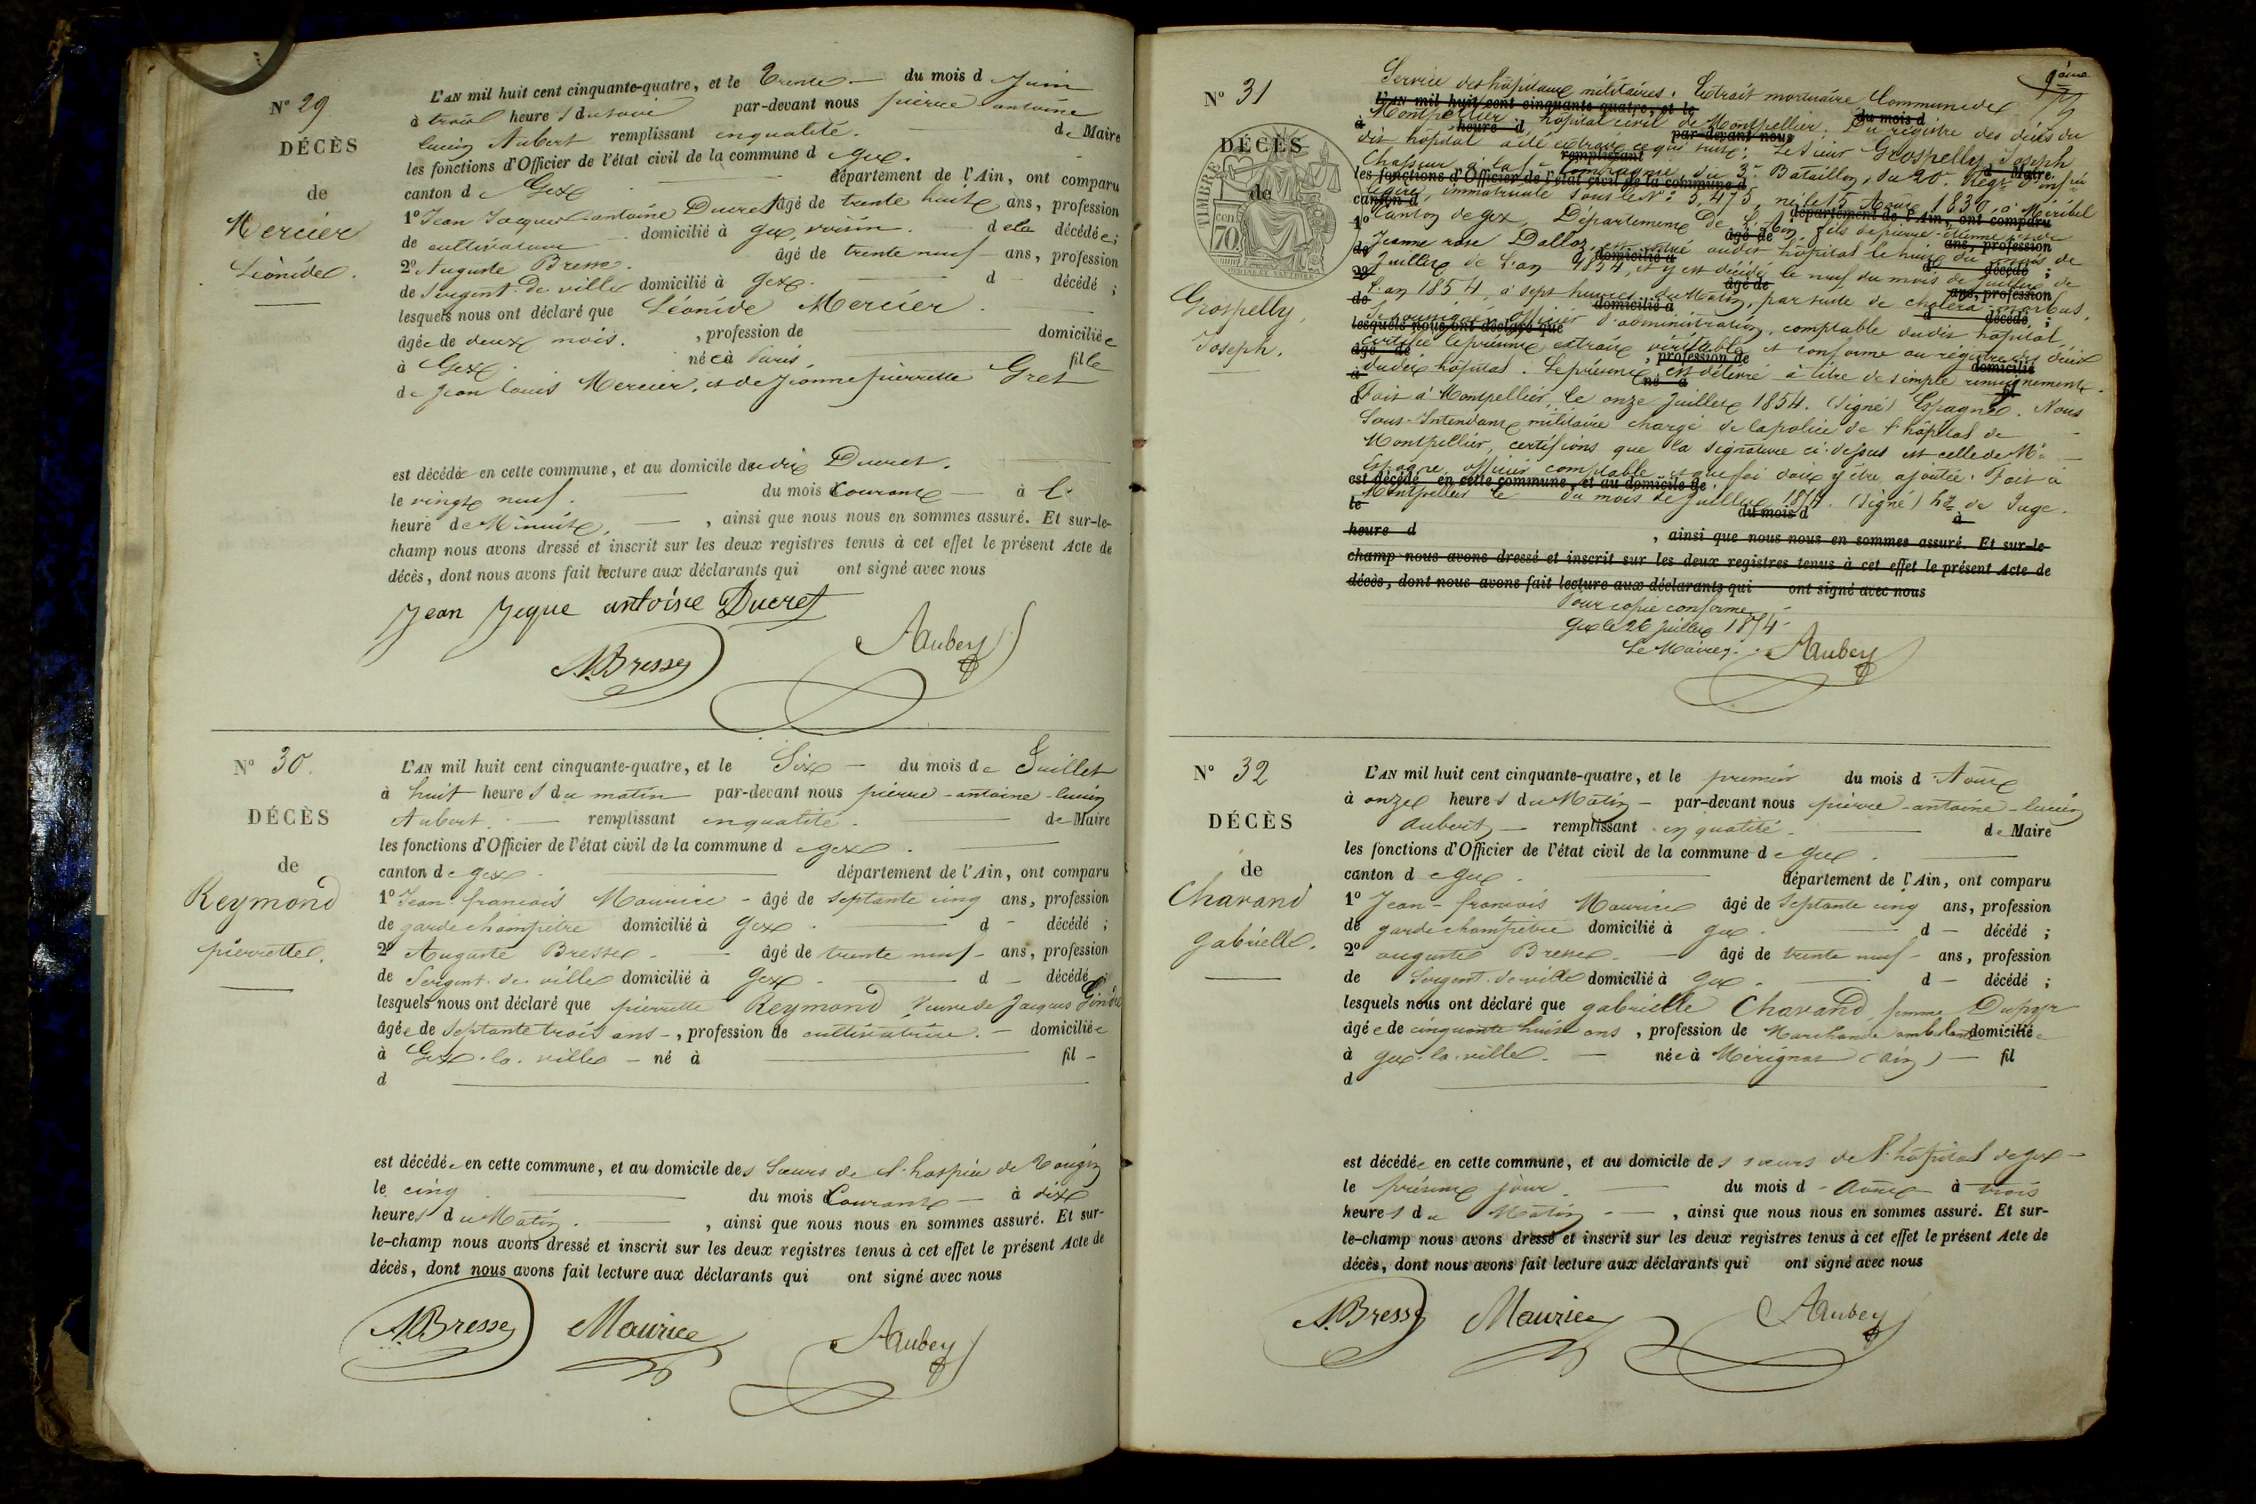 N° 29
DÉCÈS
de
Mercier
Léonide.
L'AN mil huit cent cinquante-quatre, et le Trente — du mois d Juin
à trois heures du soir par-devant nous pierre antoine
lucien Aubert remplissant en qualité. de Maire
les fonctions d'Officier de l'état civil de la commune de gex.
canton de Gex — département de l'Ain, ont comparu
1° Jean Jaques antoine Ducret âgé de trente huit ans, profession
de cultivateur — domicilié à gex, voisin. — de la décédée;
2° Auguste Bresse. âgé de trente neuf — ans, profession
de Sergent de ville domicilié à gex. — d — décédé ;
lesquels nous ont déclaré que Léonide Mercier. —
âgée de deux mois. , profession de — domiciliée
à Gex. née à Paris — fille
de Jean Louis Mercier, et de Jeanne pierrette Gret
est décédée en cette commune, et au domicile dudit Ducret.
le vingt neuf. — du mois Courant — à l.
heure de Minuit, — , ainsi que nous nous en sommes assuré. Et sur-le-
champ nous avons dressé et inscrit sur les deux registres tenus à cet effet le présent Acte de
décès, dont nous avons fait lecture aux déclarants qui ont signé avec nous
Jean Jeque antoine Ducret
A. Bresse Aubert
N° 30.
DÉCÈS
de
Reymond
pierrette.
L'AN mil huit cent cinquante-quatre, et le Six — du mois de Juillet
à huit heures du matin par-devant nous pierre-antoine-lucien
Aubert. — remplissant en qualité. — de Maire
les fonctions d'Officier de l'état civil de la commune de gex. —
canton de gex. — département de l'Ain, ont comparu
1° Jean françois Maurice - âgé de septante cinq ans, profession
de garde champêtre domicilié à Gex. — d — décédé ;
2° Auguste Bresse. — âgé de trente neuf - ans, profession
de Sergent de ville domicilié à Gex. — d — décédé ;
lesquels nous ont déclaré que pierrette Reymond Veuve de Jacques
âgée de septante trois ans -, profession de cultivatrice. — domiciliée
à Gex-la-ville — né à — fil -
d —
est décédée en cette commune, et au domicile des Sœurs de l'hospice de Tougin
le cinq — du mois Courant — à dix
heures du Matin. — , ainsi que nous nous en sommes assuré. Et sur-
le-champ nous avons dressé et inscrit sur les deux registres tenus à cet effet le présent Acte de
décès, dont nous avons fait lecture aux déclarants qui ont signé avec nous
A. Bresse Maurice Aubert
N° 31
DÉCÈS
de
TIMBRE
cen 70
Grospelly,
Joseph.
9ème
Service des hôpitaux militaires. Extrait mortuaire, Commune de
L'AN mil huit cent cinquante-quatre, et le du mois d
Montpellier, hôpital civil de Montpellier. Du registre des décès du
à heure d par-devant nous
dit hôpital a été extrait ce qui suit : Le Sieur Grospelly Joseph
remplissant de Maire
Chasseur à la Compagnie, du 3e Bataillon, du 20e Régt d'infrie
les fonctions d'Officier de l'état civil de la commune d
légère, immatriculé sous le N° 5,475, né le 15 Aout 1830, à Méribel
canton d département de l'Ain, ont comparu
Canton de gex, Département de l'Ain, fils de pierre étienne et de
1° âgé de ans, profession
Jeanne rose Dalloz, est entré audit hôpital le huit du mois de
de domicilié à d décédé ;
Juillet de l'an 1854, et y est décédé le neuf du mois de juillet de
2° âgé de ans, profession
l'an 1854, à sept heures du Matin, par suite de choléra morbus.
de domicilié à d décédé ;
Je soussigné officier d'administration, comptable dudit hôpital,
lesquels nous ont déclaré que
certifie le présent extrait véritable et conforme au registre des décès
âgé de , profession de domicilié
dudit hôpital. Le présent est délivré à titre de simple renseignement.
à né à fil
Fait à Montpellier, le onze Juillet 1854. (Signé) Espagne. Nous
d
Sous-Intendant militaire chargé de la police de l'hôpital de
Montpellier, certifions que la signature ci-dessus est celle de Mr
Espagne, officier comptable et que foi doit y être ajoutée. Fait à
est décédé en cette commune, et au domicile de
Montpellier le du mois de Juillet 1854. (Signé) de Juge.
le du mois d à
heure d , ainsi que nous nous en sommes assuré. Et sur-le-
champ nous avons dressé et inscrit sur les deux registres tenus à cet effet le présent Acte de
décès, dont nous avons fait lecture aux déclarants qui ont signé avec nous
Pour copie conforme
Gex le 26 juillet 1854
Le Maire. Aubert
N° 32
DÉCÈS
de
Chavand
gabrielle.
L'AN mil huit cent cinquante-quatre, et le premier du mois d Aout
à onze heures du Matin — par-devant nous pierre-antoine-lucien
aubert — remplissant en qualité. — de Maire
les fonctions d'Officier de l'état civil de la commune de gex. —
canton de gex. — département de l'Ain, ont comparu
1° Jean-françois Maurice âgé de septante cinq ans, profession
de garde champêtre domicilié à gex. — d — décédé ;
2° auguste Bresse. — âgé de trente neuf - ans, profession
de Sergent de ville domicilié à Gex. — d — décédé ;
lesquels nous ont déclaré que gabrielle Chavand, femme
âgée de cinquante huit ans , profession de Marchande ambulante domiciliée
à gex-la-ville. — née à Mérignat (ain) — fil
d —
est décédée en cette commune, et au domicile des sœurs de l'hôpital de gex —
le présent jour. — du mois d - aout à trois
heures du Matin. — , ainsi que nous nous en sommes assuré. Et sur-
le-champ nous avons dressé et inscrit sur les deux registres tenus à cet effet le présent Acte de
décès, dont nous avons fait lecture aux déclarants qui ont signé avec nous
A. Bresse Maurice Aubert